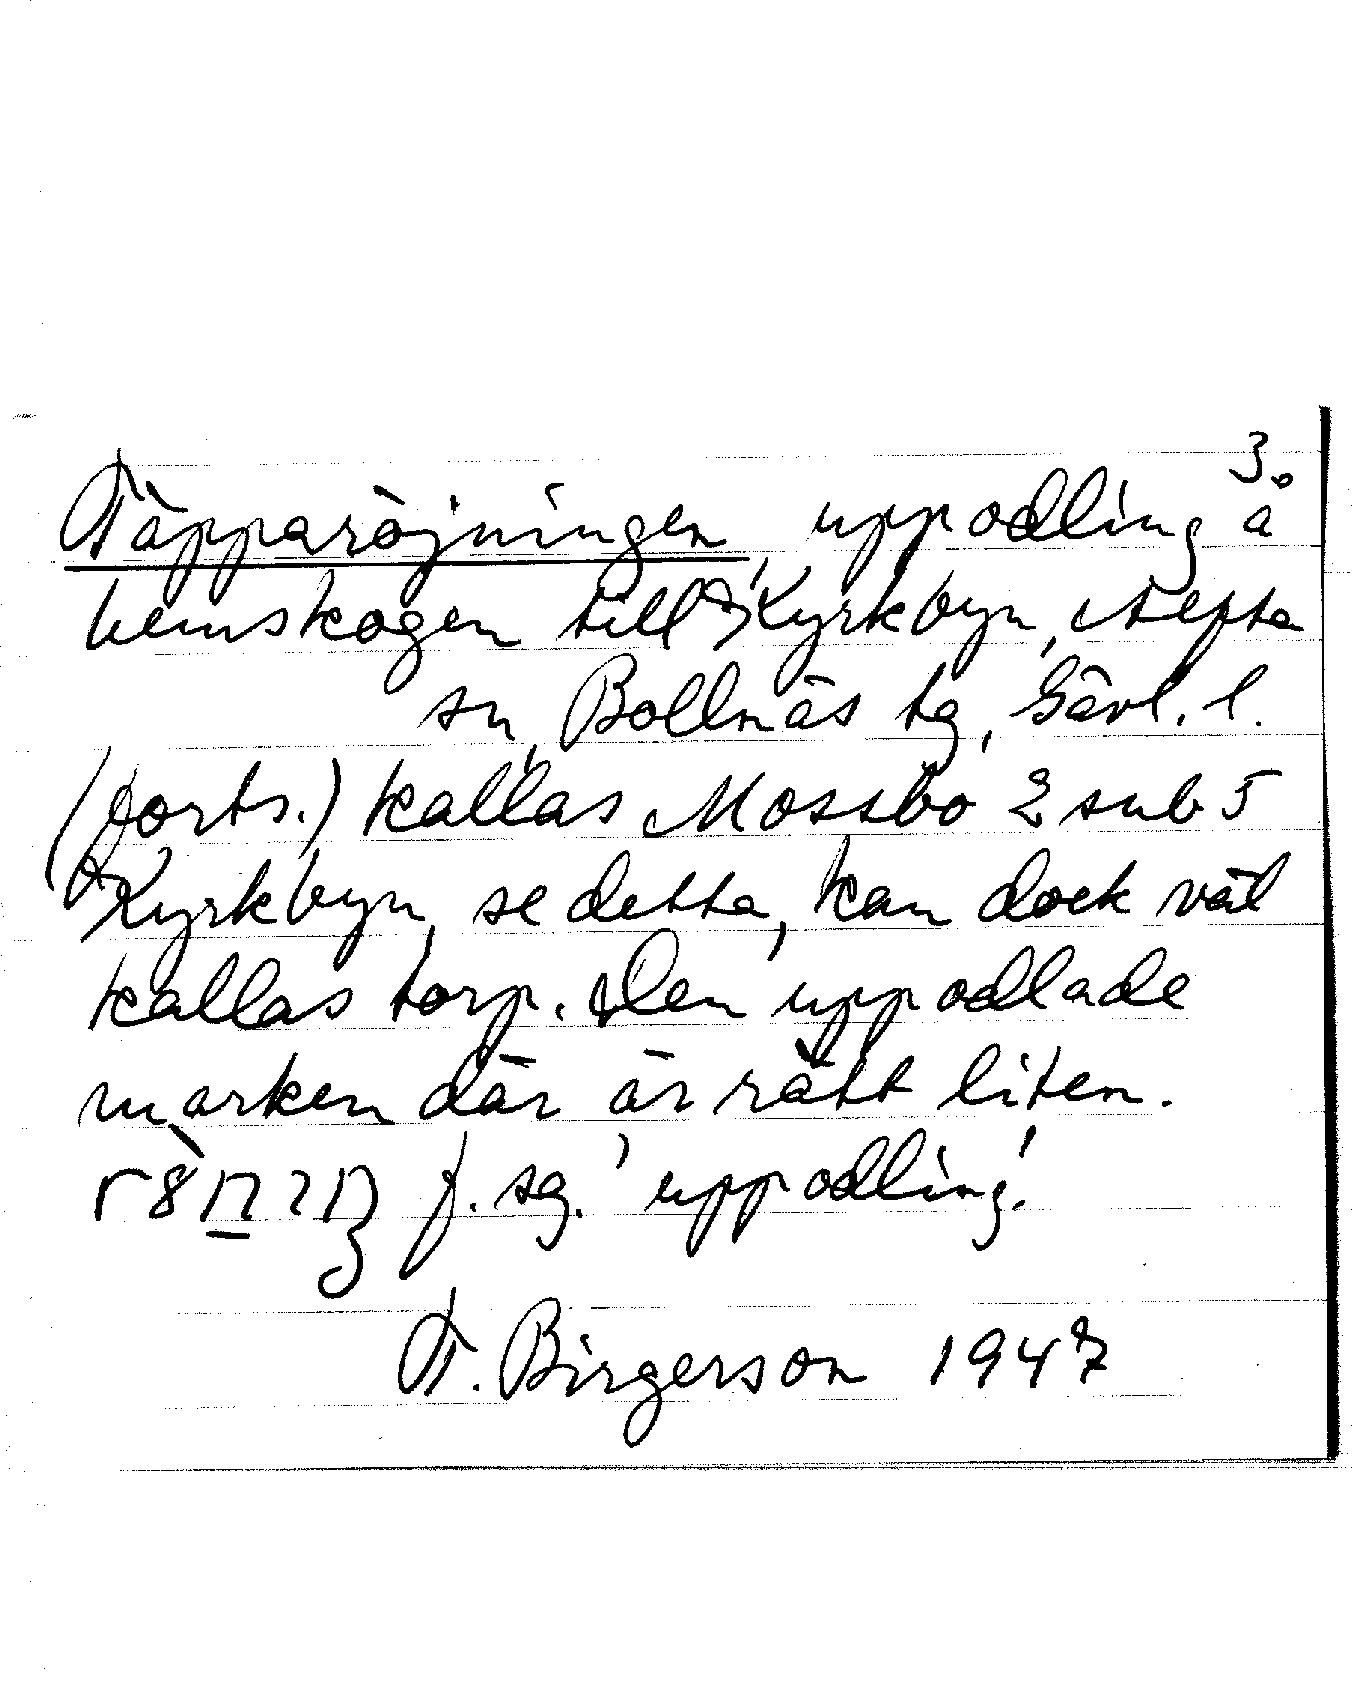 3.
Täpparöjningen, uppodling å
hemskogen till Kyrkbyn, Alfta
sn, Bollnäs tg, Gävl. l.
(forts.) kallas Mossbo 2 sub 5
Kyrkbyn, se detta, kan dock väl
kallas torp. Den uppodlade
marken där är rätt liten.
f. sg. 'uppodling'.
T. Birgerson 1947